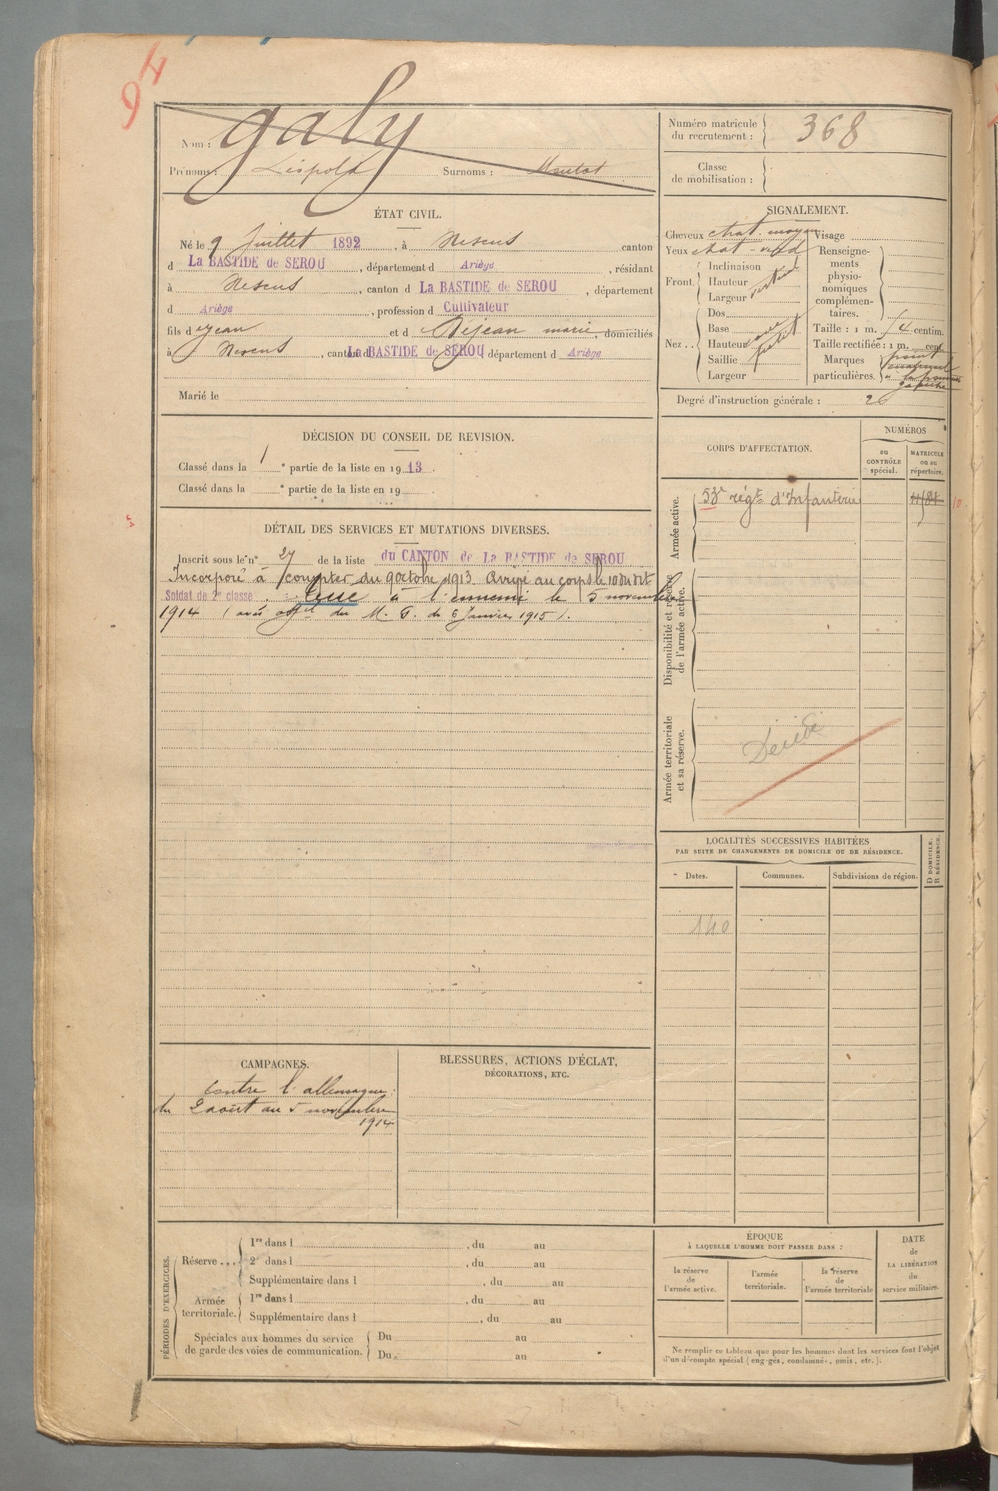 94
Nom : Galy
Prénoms : Léopold Surnoms :
Numéro matricule du recrutement : 368
Classe de mobilisation :
ÉTAT CIVIL.
Né le 9 Juillet 1892, à Nescus canton
d La BASTIDE de SEROU, département d Ariège, résidant
à Nescus, canton d La BASTIDE de SEROU, département
d Ariège, profession d Cultivateur
fils d Jean et d Dejean marie, domiciliés
à Nescus, canton d La BASTIDE de SEROU département d Ariège
Marié le
SIGNALEMENT.
Cheveux chat. moyen Visage
Yeux chat-verd
Front. Inclinaison vertical
Hauteur
Largeur
Nez .. Dos
Base
Hauteur
Saillie
Largeur
Renseignements physionomiques complémentaires.
Taille : 1 m. centim.
Taille rectifiée : 1 m. cent.
Marques particulières.
Degré d'instruction générale : 2
DÉCISION DU CONSEIL DE REVISION.
Classé dans la 1 e partie de la liste en 1913.
Classé dans la e partie de la liste en 19
DÉTAIL DES SERVICES ET MUTATIONS DIVERSES.
Inscrit sous le n° 27 de la liste du CANTON de La BASTIDE de SEROU
Incorporé à compter du 9 octobre 1913. Arrivé au corps le 10 du dit
Soldat de 2e classe. Tué à l'ennemi le 5 novembre
1914 (avis offel du M. G. du 6 Janvier 1915).
CORPS D'AFFECTATION.
NUMÉROS
au CONTRÔLE spécial.
MATRICULE ou au répertoire.
Armée active.
53e régt d'Infanterie
Disponibilité et réserve de l'armée active.
Armée territoriale et sa réserve.
Décédé
LOCALITÉS SUCCESSIVES HABITÉES
PAR SUITE DE CHANGEMENTS DE DOMICILE OU DE RÉSIDENCE.
Dates. Communes. Subdivisions de région.
D DOMICILE. R RÉSIDENCE.
140
CAMPAGNES.
Contre l'allemagne.
du 2 août au 5 novembre
1914
BLESSURES, ACTIONS D'ÉCLAT,
DÉCORATIONS, ETC.
PÉRIODES D'EXERCICES.
Réserve ... 1re dans l , du au
2e dans l , du au
Supplémentaire dans l , du au
Armée territoriale. 1re dans l , du au
Supplémentaire dans l , du au
Spéciales aux hommes du service de garde des voies de communication. Du au
Du au
ÉPOQUE
À LAQUELLE L'HOMME DOIT PASSER DANS :
la réserve de l'armée active.
l'armée territoriale.
la réserve de l'armée territoriale
DATE de LA LIBÉRATION du service militaire.
Ne remplir ce tableau que pour les hommes dont les services font l'objet
d'un décompte spécial (engagés, condamnés, omis, etc.).